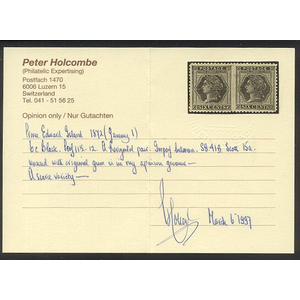 Peter Holcombe
(Philatelic Expertising)
Postfach 1470
6006 Luzern 15
Switzerland
Tel. 041 - 51 56 25
Opinion only / Nur Gutachten
POSTAGE POSTAGE
SIX CENTS SIX CENTS
Prince Edward Island 1872 (January 1)
6c Black. Perf 11.5-12. A horizontal pair. Imperf between. SG 41B Scott 15a.
unused with original gum is in my opinion genuine —
A scarce variety —
March 6 1997